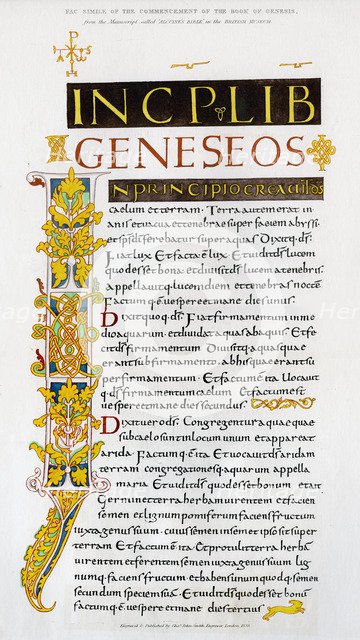 FAC SIMILE OF THE COMMENCEMENT OF THE BOOK OF GENESIS,
from the Manuscript called 'ALCUINE'S BIBLE,' in the BRITISH MUSEUM.
INCP·LIB
GENESEOS
IN PRINCIPIO CREAVIT DS
caelum et terram · Terra autem erat in
anis et vacua et tenebrae super faciem abyssi
et sps di ferebatur super aquas Dixitq· ds·
Fiat lux Et facta ē lux Et vidit ds lucem
quod esset bona et divisit ds lucem a tenebris·
appellavitq· lucem diem et tenebras noctem
Factumq· ē vespere et mane dies unus·
Dixit quoq· ds· Fiat firmamentum in me
dio aquarum et dividat aquas ab aquis · Et fe
cit ds firmamentum Divisitq· aquas quae
erant sub firmamento · ab his quae erant su
per firmamentum · Et factum ē ita Vocavit
q· ds firmamentum caelum Et factum est
vespere et mane dies secundus·
Dixit vero ds · Congregentur aquae quae
sub caelo sunt in locum unum et appareat
arida · Factumq· ē ita Et vocavit ds aridam
terram congregationesq· aquarum appella
maria Et vidit ds quod esset bonum et ait
Germinet terra herbam virentem et facien
semen et lignum pomiferum faciens fructum
iuxta genus suum · cuius semen in semet ipso sit super
terram Et factum ē ita Et protulit terra herbā
virentem et ferentem semen iuxta genus suum lig
numq· faciens fructum et habens unumquodq· semen
secundum speciem suā Et vidit ds quod esset bonū
factumq· ē vespere et mane dies tertius
Engraved & Published by Thos. John Smith, Engraver, London, 1836